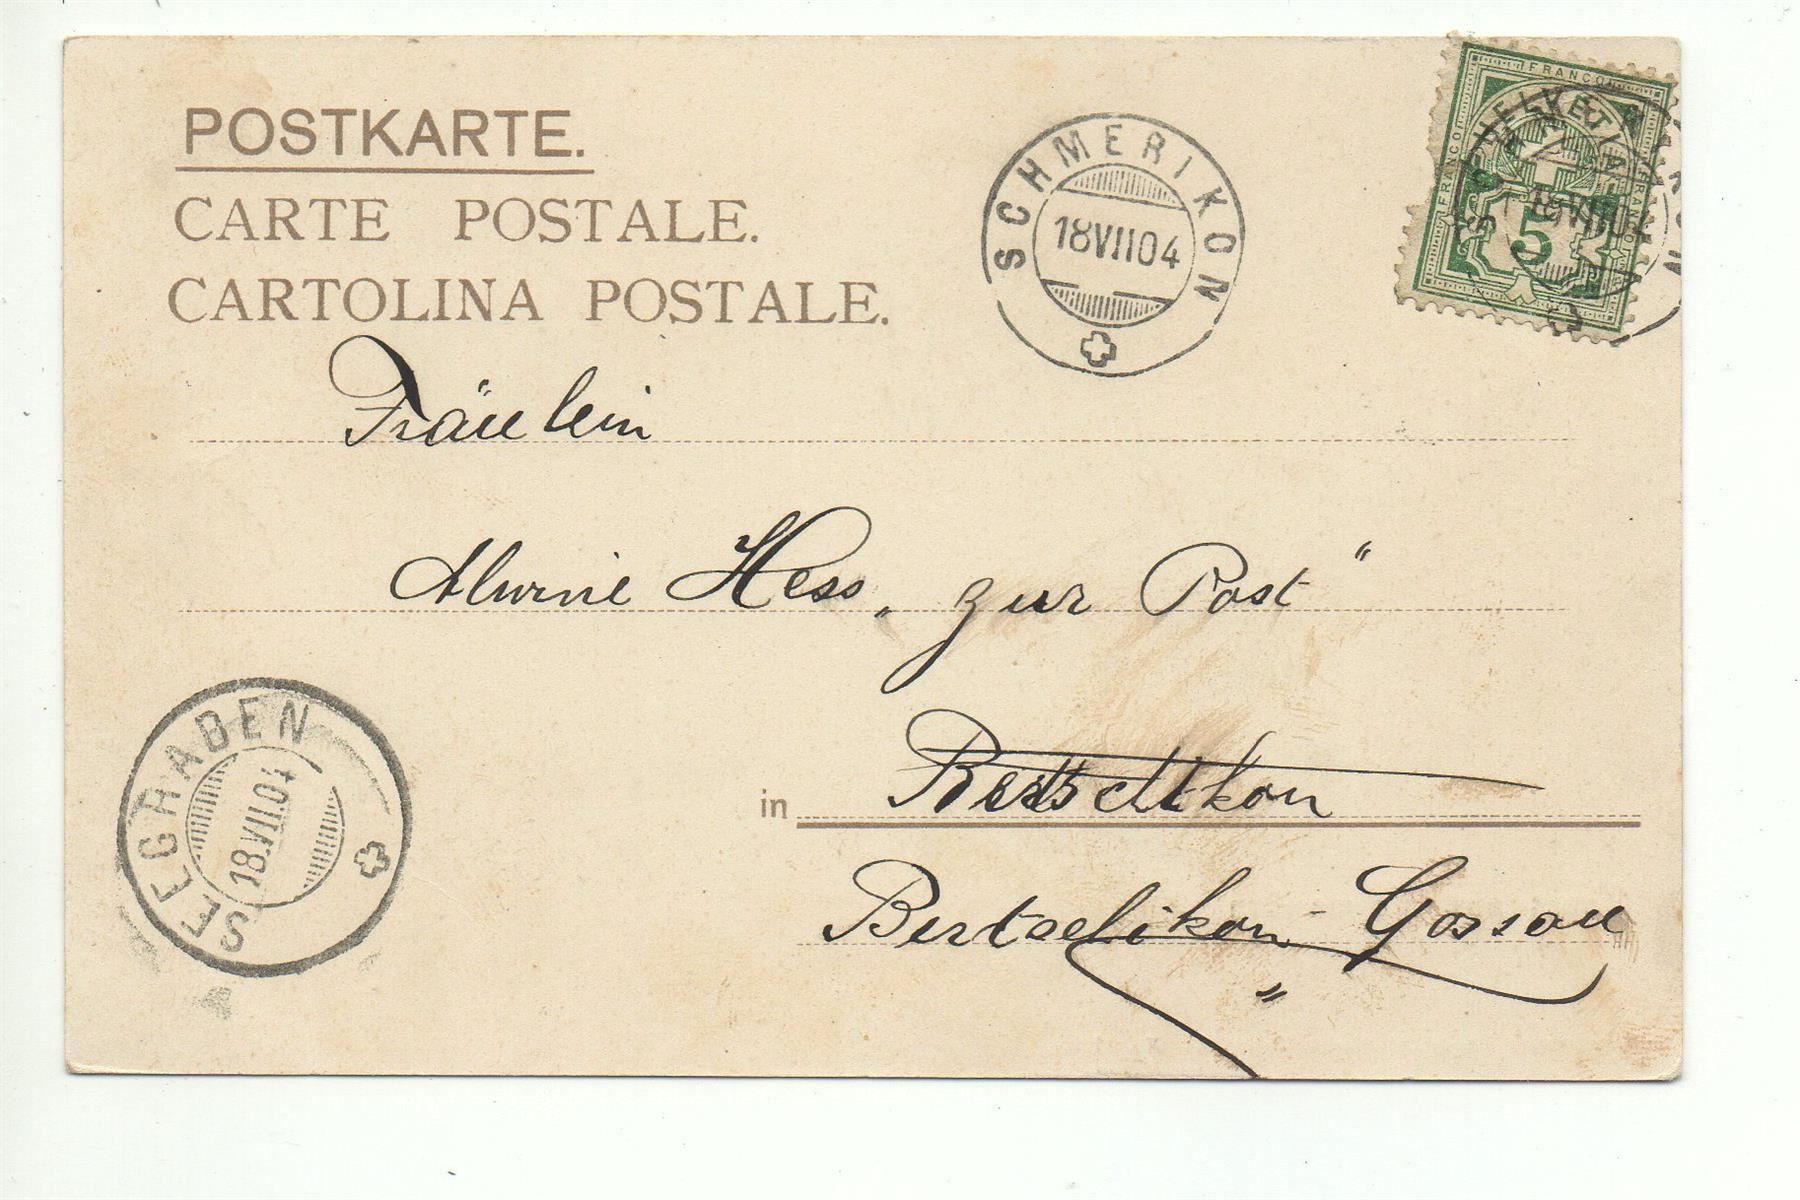 POSTKARTE.
CARTE POSTALE.
CARTOLINA POSTALE.
SCHMERIKON
18 VII 04
FRANCO
HELVETIA
FRANCO
5
18 VII 04
Fräulein
Alwine Hess „ zur Post "
in Bertschikon
Bertschikon - Gossau
"
SEEGRABEN
18.VII.04